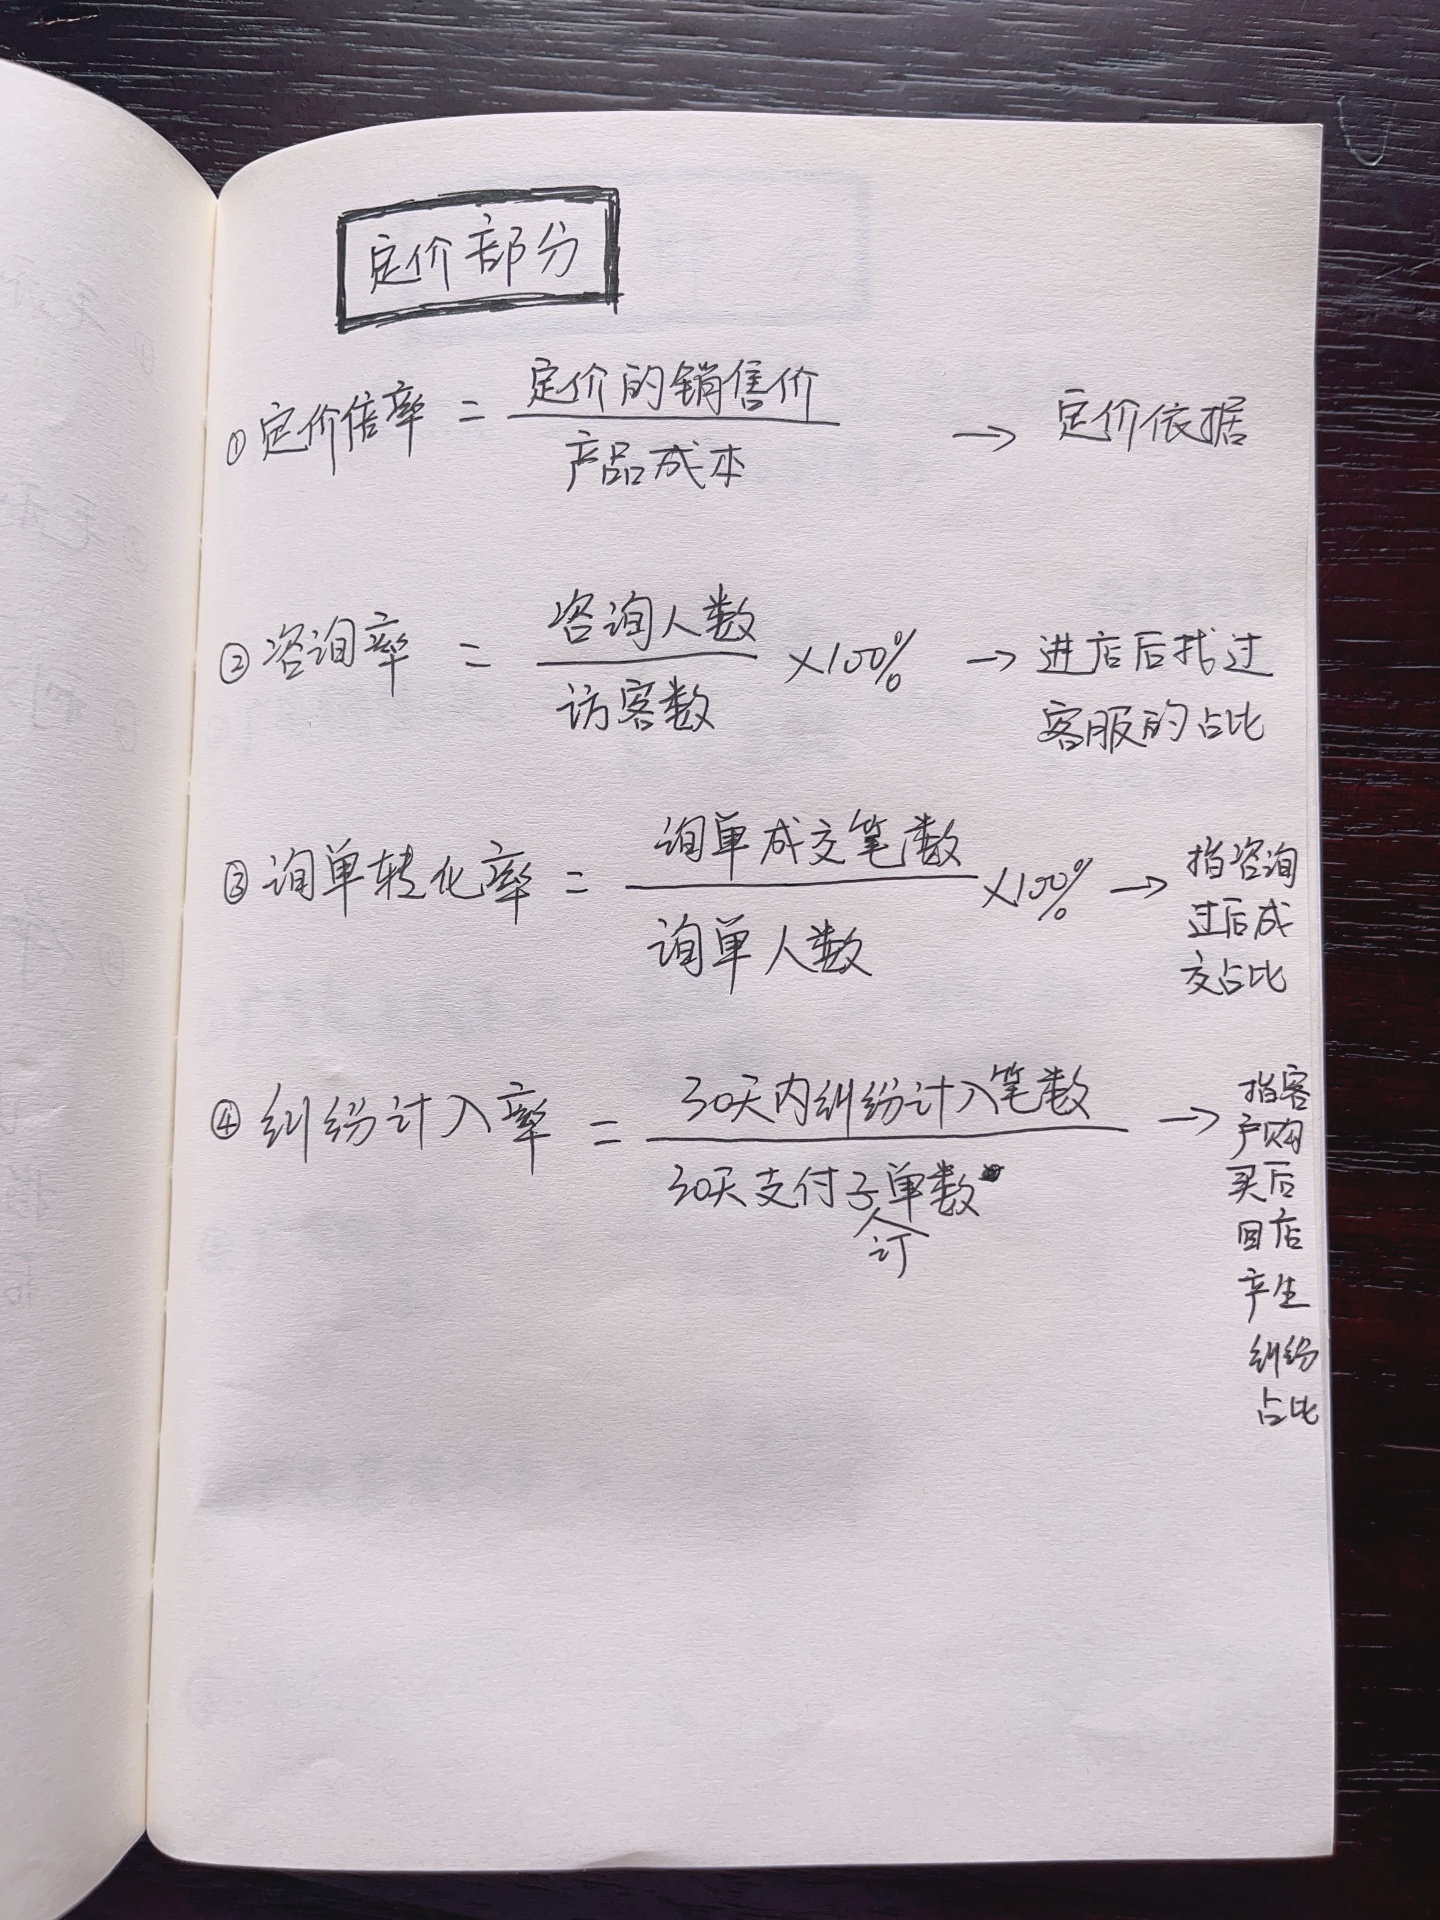 定价部分
①定价倍率 = 定价的销售价 / 产品成本 → 定价依据
②咨询率 = 咨询人数 / 访客数 ×100% → 进店后找过
客服的占比
③询单转化率 = 询单成交笔数 / 询单人数 ×100% → 指咨询
过后成
交占比
④纠纷计入率 = 30天内纠纷计入笔数 / 30天支付子订单数 → 指客
户购
买后
回店
产生
纠纷
占比